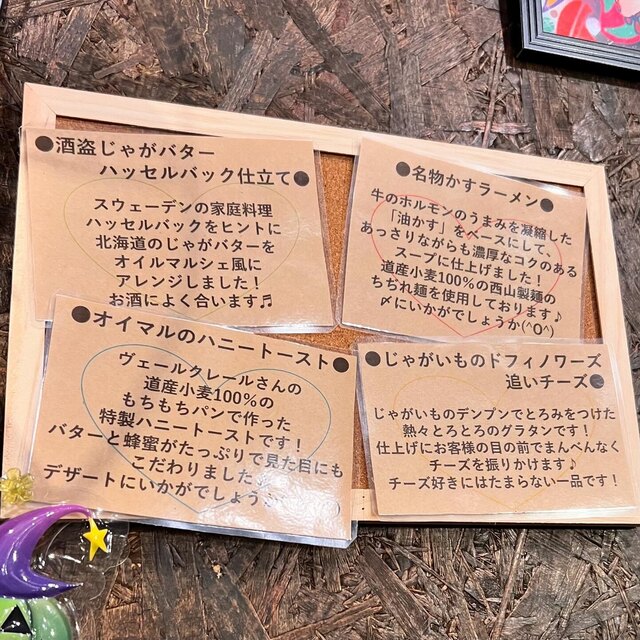 ●酒盗じゃがバター
ハッセルバック仕立て●
スウェーデンの家庭料理
ハッセルバックをヒントに
北海道のじゃがバターを
オイルマルシェ風に
アレンジしました！
お酒によく合います♬
●名物かすラーメン●
牛のホルモンのうまみを凝縮した
「油かす」をベースにして、
あっさりながらも濃厚なコクのある
スープに仕上げました！
道産小麦100%の西山製麺の
ちぢれ麺を使用しております♪
〆にいかがでしょうか(^O^)
●オイマルのハニートースト●
ヴェールクレールさんの
道産小麦100%の
もちもちパンで作った
特製ハニートーストです！
バターと蜂蜜がたっぷりで見た目にも
こだわりました
デザートにいかがでしょう
●じゃがいものドフィノワーズ
追いチーズ●
じゃがいものデンプンでとろみをつけた
熱々とろとろのグラタンです！
仕上げにお客様の目の前でまんべんなく
チーズを振りかけます♪
チーズ好きにはたまらない一品です！